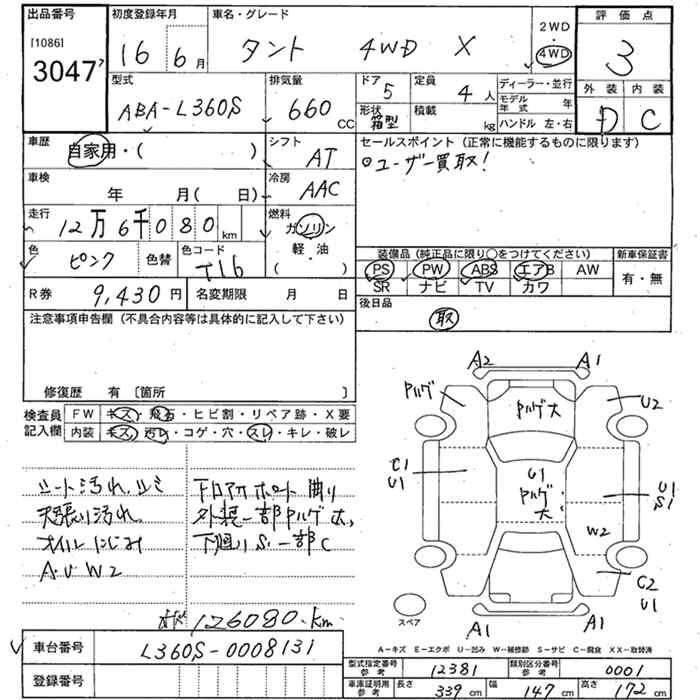 出品番号
[1086]
3047
初度登録年月
16 6月
車名・グレード
タント 4WD X
2WD
4WD
評価点
3
外装 内装
D C
型式
ABA-L360S
排気量
660 CC
ドア
5
定員
4人
ディーラー・並行
モデル年式 年
ハンドル 左・右
形状
箱型
積載
kg
車歴
自家用・( )
シフト
AT
セールスポイント(正常に機能するものに限ります)
○ユーザー買取!
車検
年 月( 日)
冷房
AAC
走行
12万6千080km
燃料
ガソリン
軽・油
( )
色
ピンク
色替
色コード
T16
装備品(純正品に限り○をつけてください)
新車保証書
PS PW ABS エアB AW
有・無
SR ナビ TV カワ
R券 9,430円
名変期限 月 日
後日品
取
注意事項申告欄(不具合内容等は具体的に記入して下さい)
修復歴 有〔箇所 〕
検査員
記入欄
FW キズ・飛石・ヒビ割・リペア跡・X要
内装 キズ・汚レ・コゲ・穴・スレ・キレ・破レ
シート汚れ、シミ
天張り汚れ
オイルにじみ
A.U W2
下回りS.一部C
126080.km
A2 A1
U2
U1
C1
U1
U1
S1
W2
C2
U1
A1 A1
スペア
A-キズ E-エクボ U-凹み W-補修跡 S-サビ C-腐食 XX-取替済
車台番号 L360S-0008131
登録番号
型式指定番号
参考
12381
類別区分番号
参考
0001
車庫証明用
参考
長さ 339 cm
幅 147 cm
高さ 172 cm